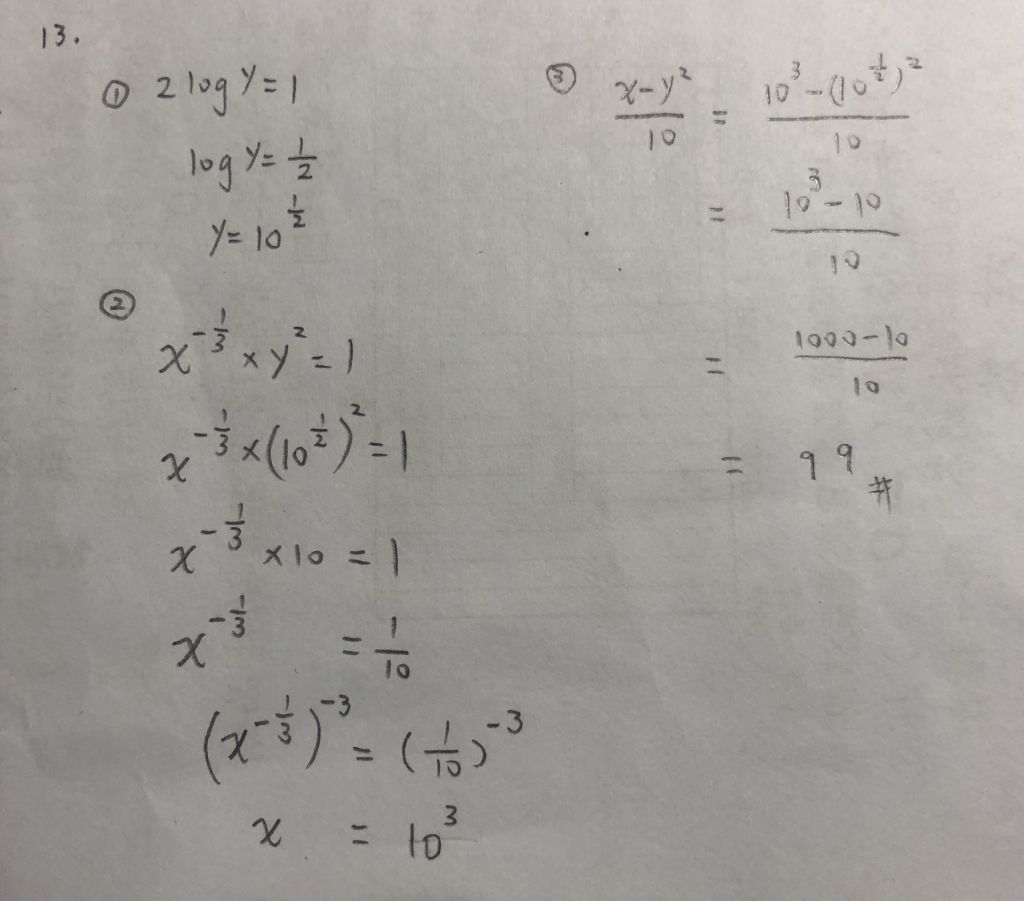 13.
① 2 log y = 1
log y = 1/2
y = 10^(1/2)
②
x^(-1/3) × y^2 = 1
x^(-1/3) × (10^(1/2))^2 = 1
x^(-1/3) × 10 = 1
x^(-1/3) = 1/10
(x^(-1/3))^(-3) = (1/10)^(-3)
x = 10^3
③ (x-y^2)/10 = (10^3-(10^(1/2))^2)/10
= (10^3-10)/10
= (1000-10)/10
= 99 #